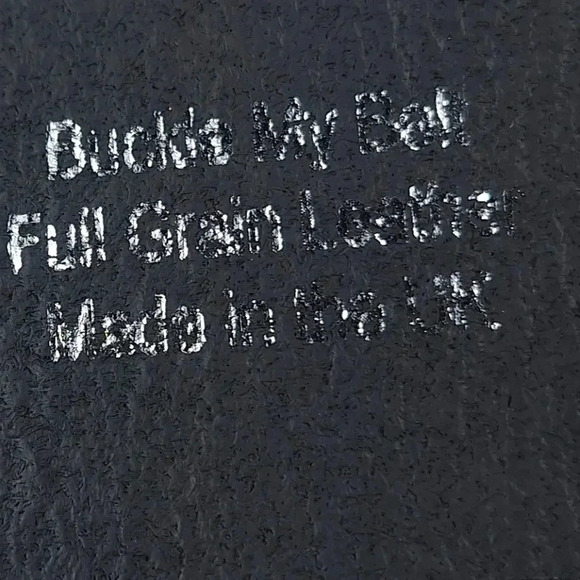 Buckle My Belt
Full Grain Leather
Made in the UK